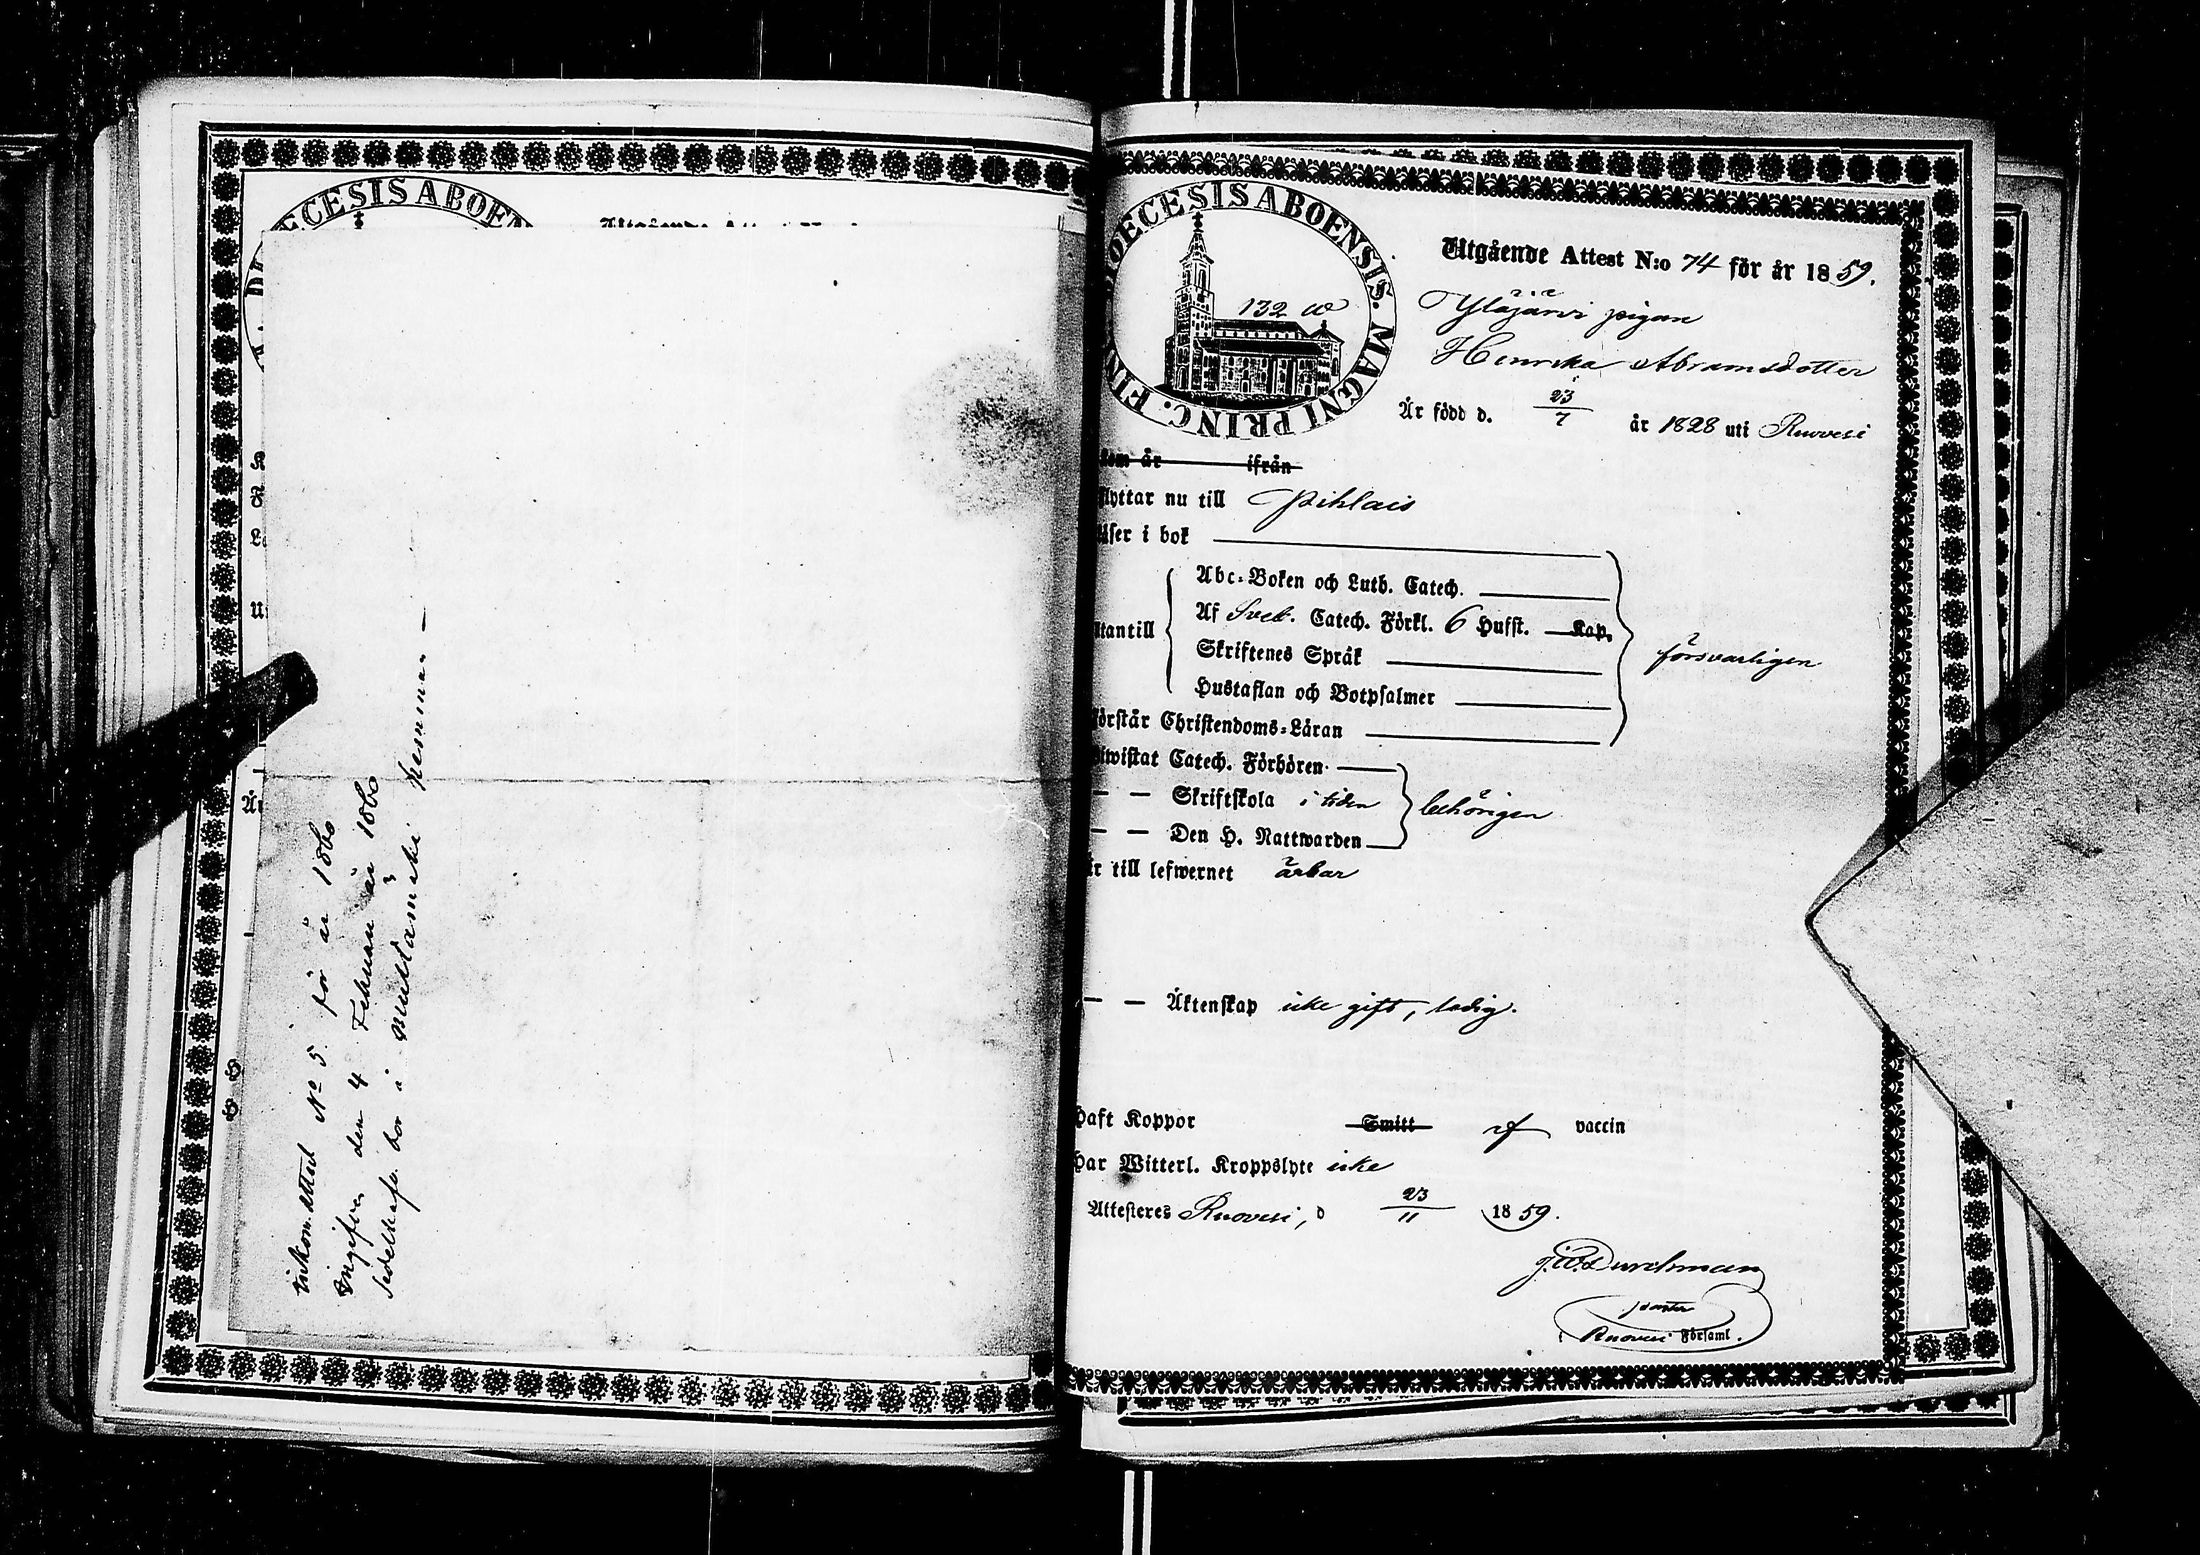 ECESIS ABOEN
Inkom. Attest No 5 för år 1860
Ingifven den 4 Februari år 1860
i hemman —
DIOECESIS ABOENSIS. MAGNI PRINC. FIN
132
Utgående Attest N:o 74 för år 1859.
Yläjärvi pigan
Henrika Abramsdotter
Är född d. 23/7 år 1828 uti Ruovesi
kom år ifrån
flyttar nu till Pihlais
läser i bok
Utantill
Abc-Boken och Luth. Catech.
Af Sveb. Catech. Förkl. 6 Hufst. Kap.
Skriftenes Språk
Hustaflan och Botpsalmer
försvarligen
förstår Christendoms-Läran
biwistat Catech. Förhören
— — Skriftskola i tiden
— — Den H. Nattwarden
behörigen
är till lefwernet ärbar
— — Äktenskap icke gift, ledig.
Haft Koppor Smitt af vaccin
Har Witterl. Kroppslyte icke
Attesteres Ruovesi, d 23/11 1859.
Durchman
Ruovesi Församl.